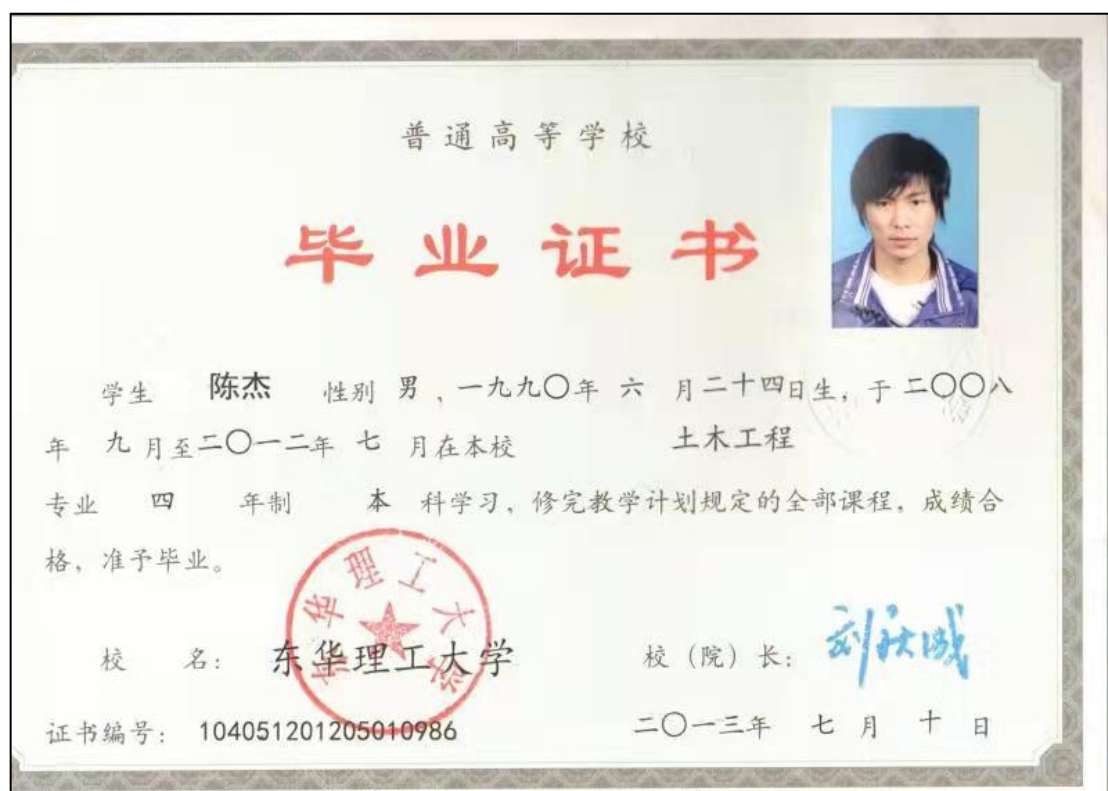 普通高等学校
毕业证书
学生 陈杰 性别 男、一九九〇年 六 月二十四日生，于二〇〇八
年 九 月至二〇一二年 七 月在本校 土木工程
专业 四 年制 本 科学习，修完教学计划规定的全部课程，成绩合
格，准予毕业。
东华理工大学
校 名： 东华理工大学 校（院）长： 刘庆成
证书编号： 104051201205010986 二〇一三年 七 月 十 日